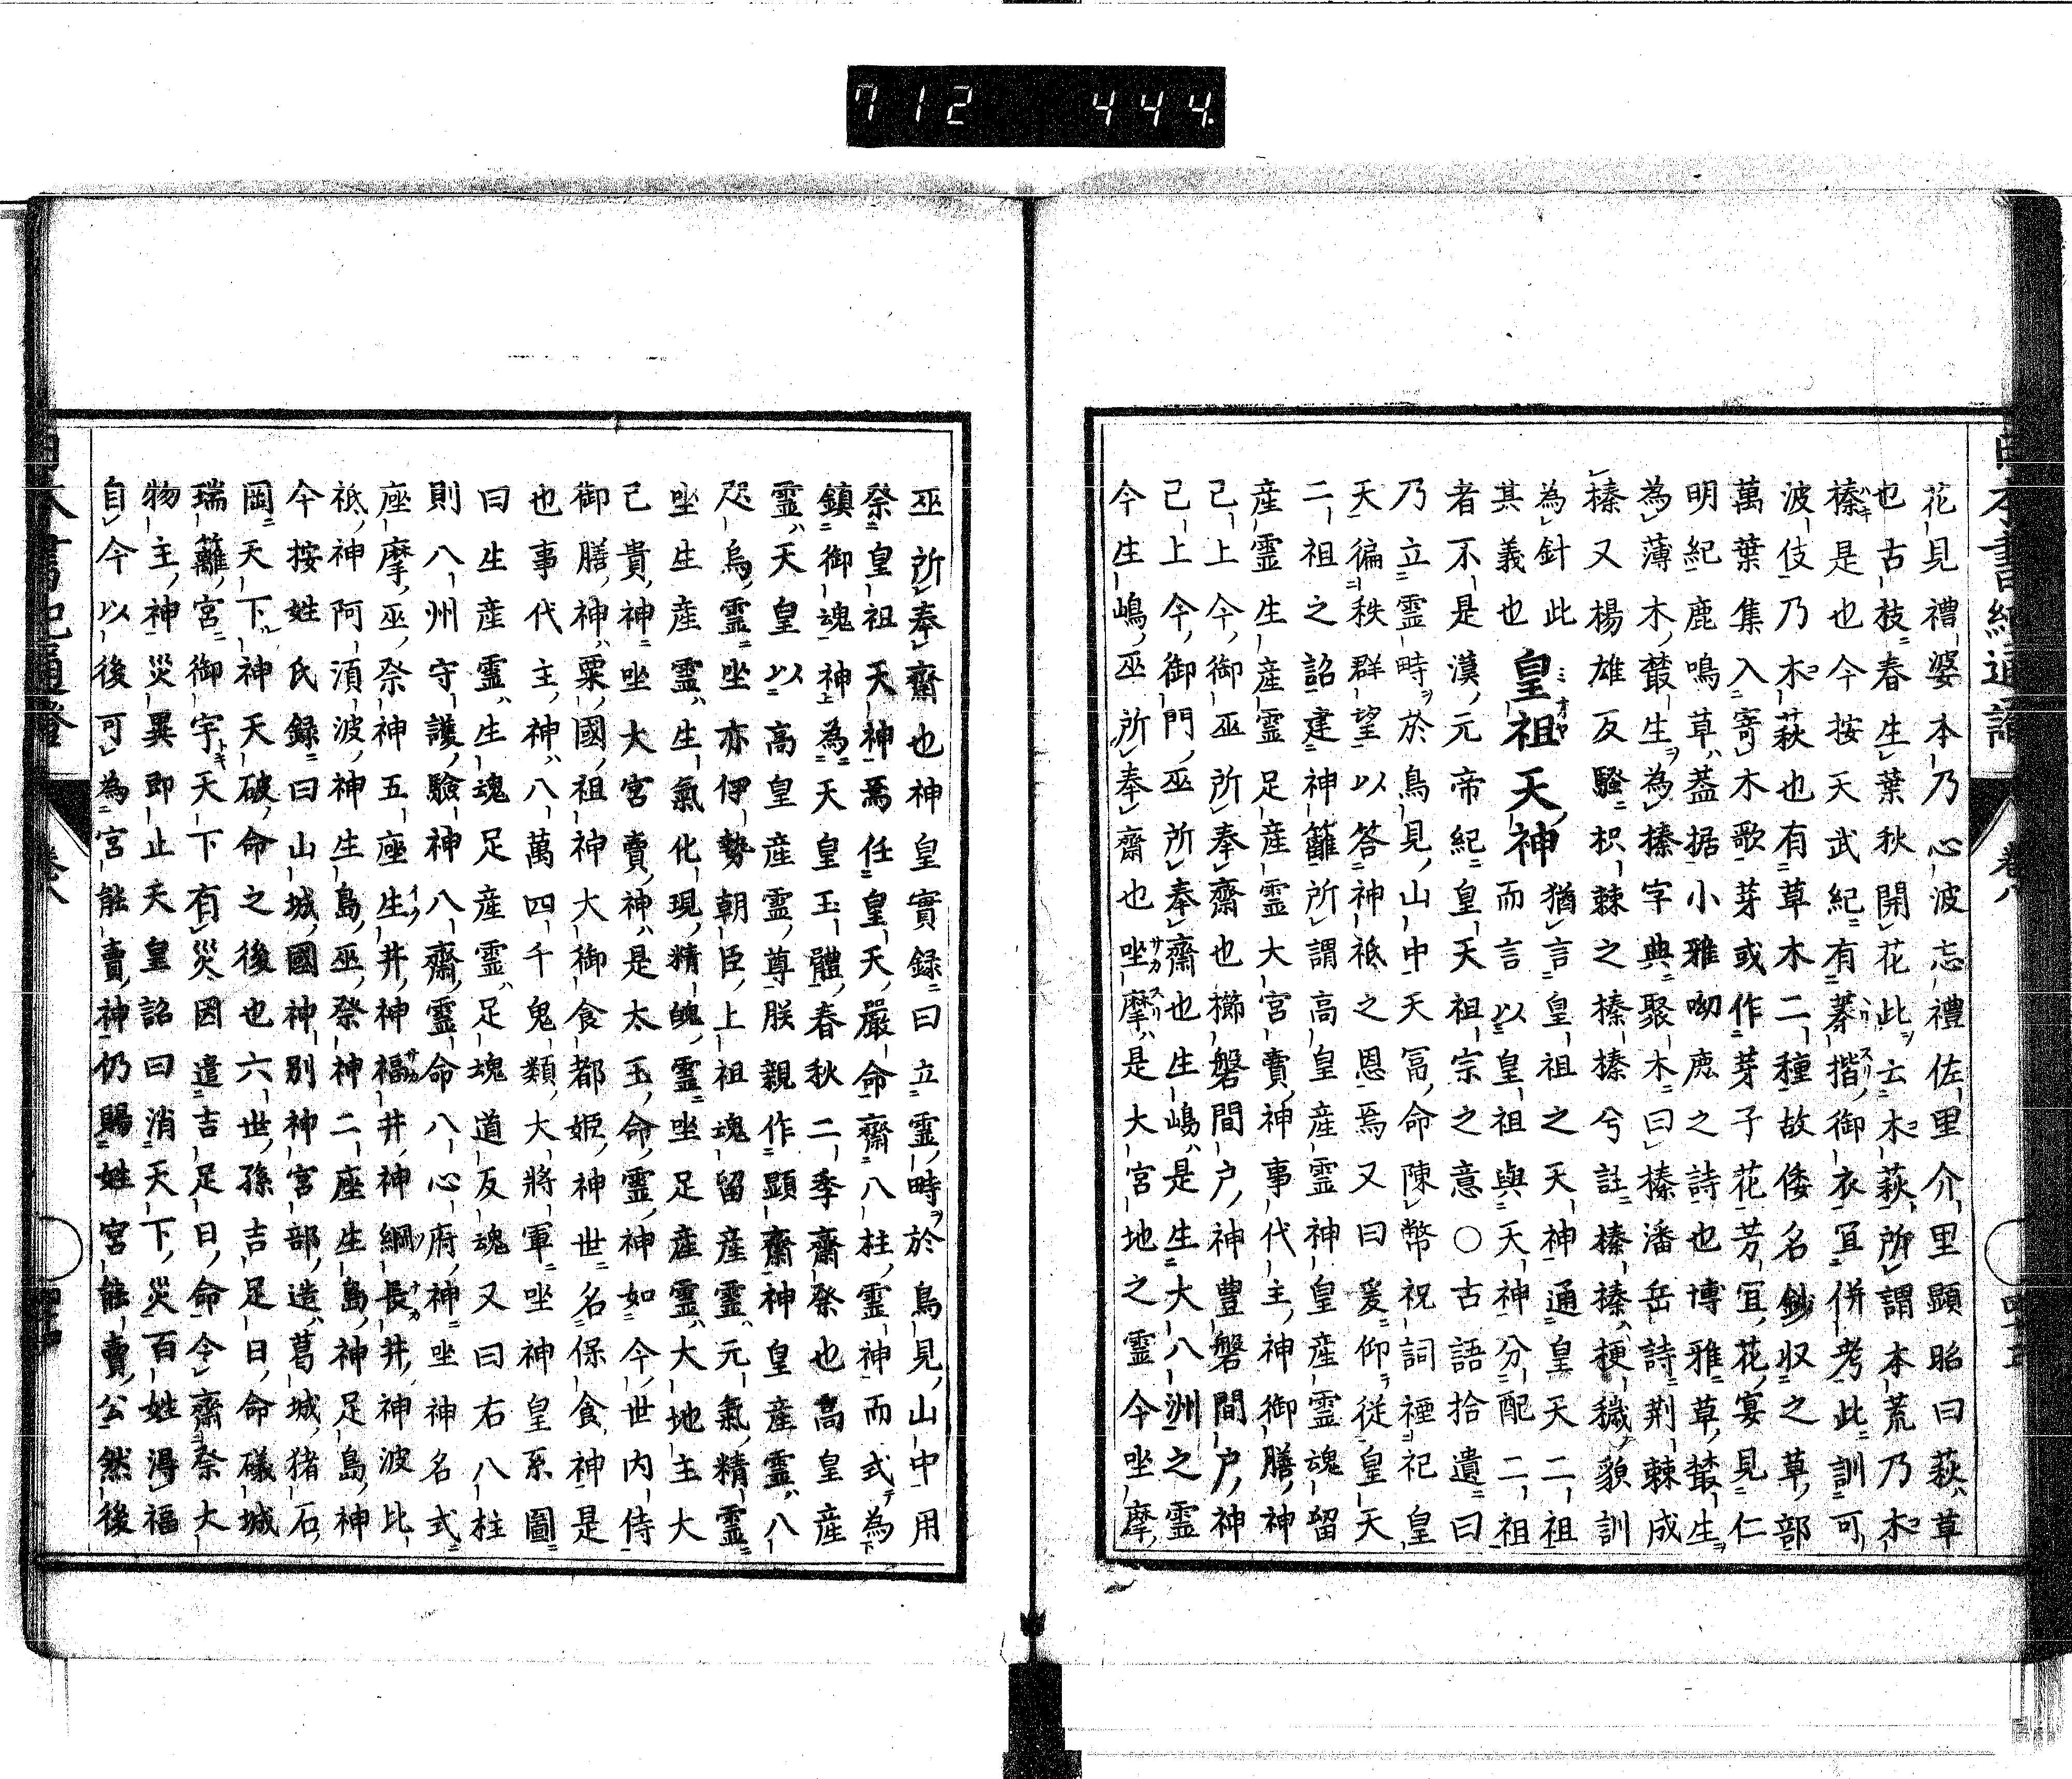 712 444.
花見禮婆本乃心波忘禮佐里介里顕昭曰萩草
也古枝春生葉秋開花此云木萩所謂本荒乃木
榛是也今按天武紀有蓁揩御衣冝併考此訓可
波伎乃木萩也有草木二種故倭名鈔収之草部
萬葉集入寄木歌芽或作芽子花芳冝花宴見仁
明紀鹿鳴草蓋据小雅呦鹿之詩也博雅草藂生
為薄木藂生為榛字典聚木曰榛潘岳詩荆棘成
榛又楊雄反騷枳棘之榛榛兮註榛榛梗穢貌訓
為針此
皇祖天神
猶言皇祖之天神通皇天二祖
其義也
而言以皇祖與天神分配二祖
者不是漢元帝紀皇天祖宗之意○古語拾遺曰
乃立霊時於鳥見山中天冨命陳幣祝詞禋祀皇
天徧秩群望以答神祇之恩焉又曰爰仰従皇天
二祖之詔建神籬所謂高皇産霊神皇産霊魂留
産霊生産霊足産霊大宮賣神事代主神御膳神
已上今御巫所奉齋也櫛磐間戸神豊磐間戸神
已上今御門巫所奉齋也生嶋是生大八洲之霊
今生嶋巫所奉齋也坐摩是大宮地之霊今坐摩
巫所奉齋也神皇實録曰立霊時於鳥見山中用
祭皇祖天神焉任皇天嚴命齋八柱霊神而式為
鎮御魂神為天皇玉體春秋二季齋祭也高皇産
霊天皇以高皇産霊尊朕親作顕齋神皇産霊八
咫烏霊坐亦伊勢朝臣上祖魂留産霊元氣精霊
坐生産霊生氣化現精魄霊坐足産霊大地主大
己貴神坐大宮賣神是太玉命霊神如今世内侍
御膳神粟國祖神大御食都姫神世名保食神是
也事代主神八萬四千鬼類大將軍坐神皇系圖
曰生産霊生魂足産霊足魂道反魂又曰右八柱
則八州守護驗神八齋霊命八心府神坐神名式
座摩巫祭神五座生井神福井神綱長井神波比
祇神阿湏波神生島巫祭神二座生島神足島神
今按姓氏録曰山城國神別神宮部造葛城猪石
岡天下神天破命之後也六世孫吉足日命礒城
瑞籬宮御宇天下有災因遣吉足日命令齋祭大
物主神災異即止天皇詔曰消天下災百姓得福
自今以後可為宮能賣神仍賜姓宮能賣公然後